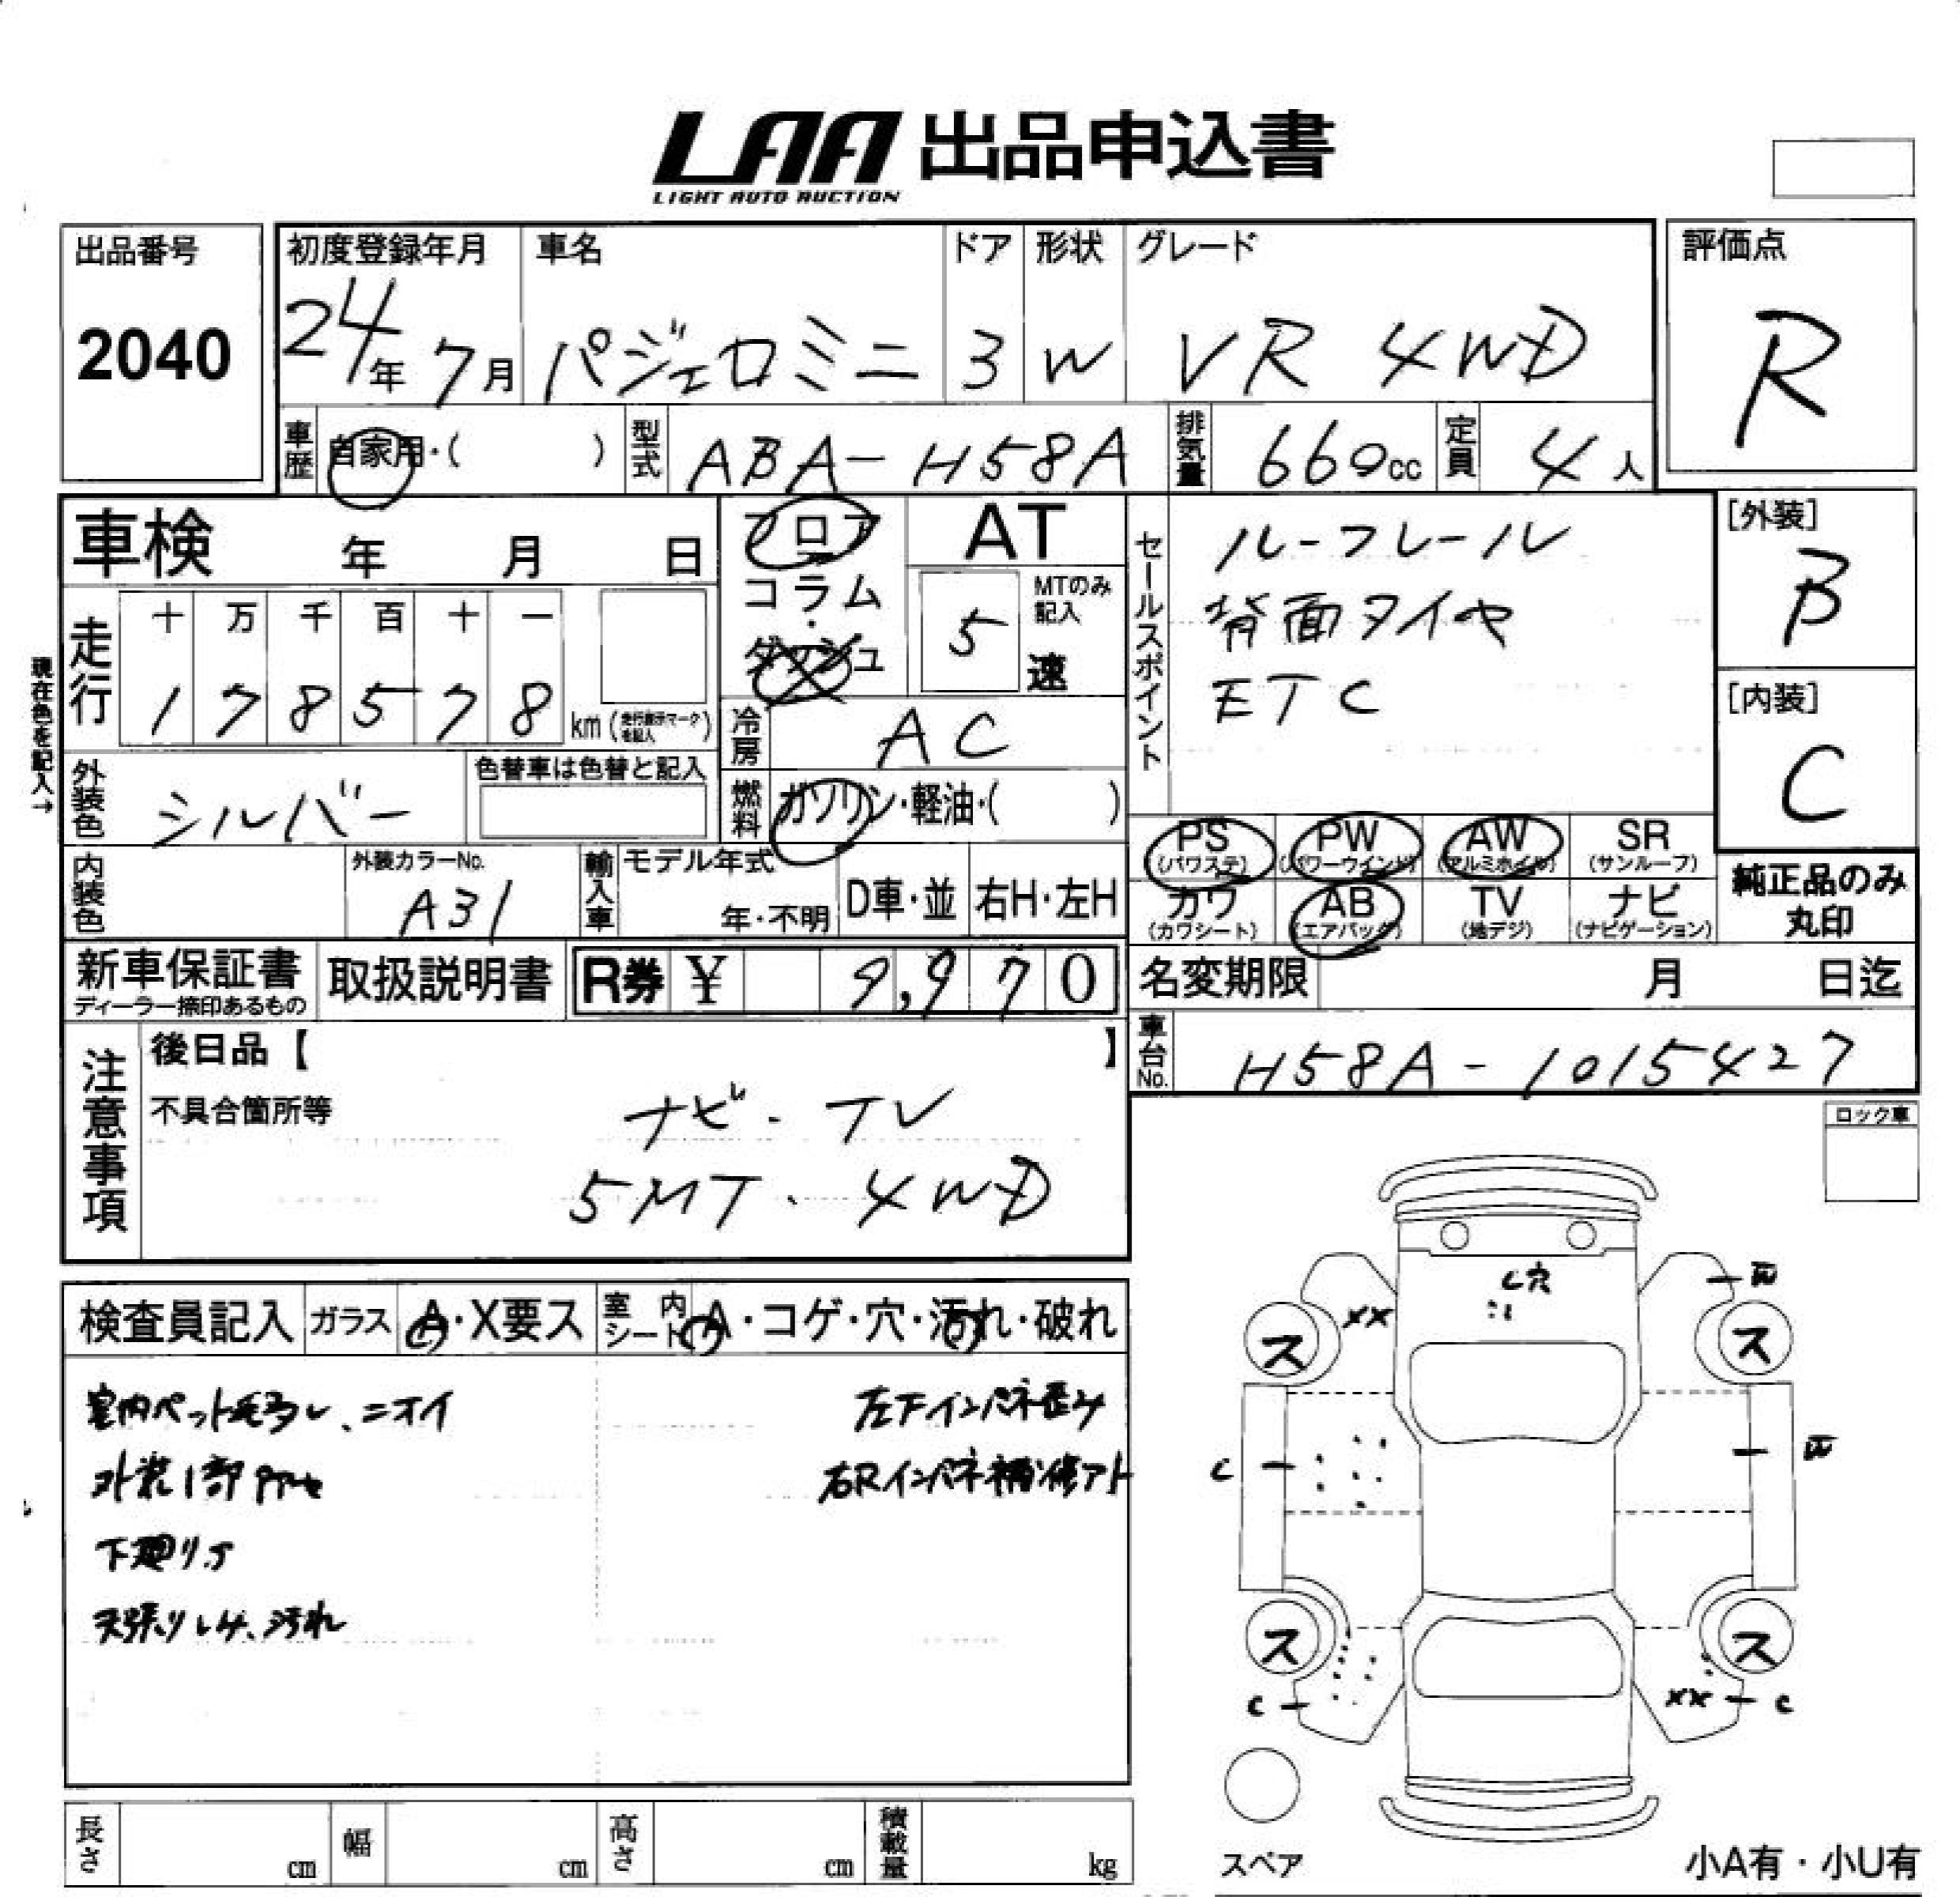 LAA 出品申込書
LIGHT AUTO AUCTION
出品番号
2040
初度登録年月
24年 7月
車名
パジェロミニ
ドア
3
形状
W
グレード
VR 4WD
評価点
R
車歴
自家用・( )
型式
ABA-H58A
排気量
660cc
定員
4人
車検 年 月 日
フロア
コラム
・
ダッシュ
AT
MTのみ記入
5 速
セールスポイント
ルーフレール
背面タイヤ
ETC
[外装]
B
[内装]
C
現在色を記入→
走行
十 万 千 百 十 一
1 7 8 5 7 8 km (走行表示マークを記入)
冷房
AC
外装色
シルバー
色替車は色替と記入
燃料
ガソリン・軽油・( )
PS (パワステ)
PW (パワーウインド)
AW (アルミホイル)
SR (サンルーフ)
カワ (カワシート)
AB (エアバッグ)
TV (地デジ)
ナビ (ナビゲーション)
純正品のみ
丸印
内装色
外装カラーNo.
A31
輸入車
モデル年式
年・不明
D車・並
右H・左H
新車保証書
ディーラー捺印あるもの
取扱説明書
R券 ¥ 9,970
名変期限 月 日迄
車台No.
H58A-1015427
注意事項
後日品【 】
不具合箇所等
ナビ・TV
5MT・4WD
ロック車
検査員記入
ガラス
A・X要ス
室内シート
A・コゲ・穴・汚れ・破れ
室内ペット毛多し、ニオイ
外装1部
下廻りサ
天張りしみ、汚れ
左下インパネ歪み
右Rインパネ補修アト
C穴
XX
ス
ス
C
ス
ス
C
XX C
スペア
小A有・小U有
長さ cm
幅 cm
高さ cm
積載量 kg